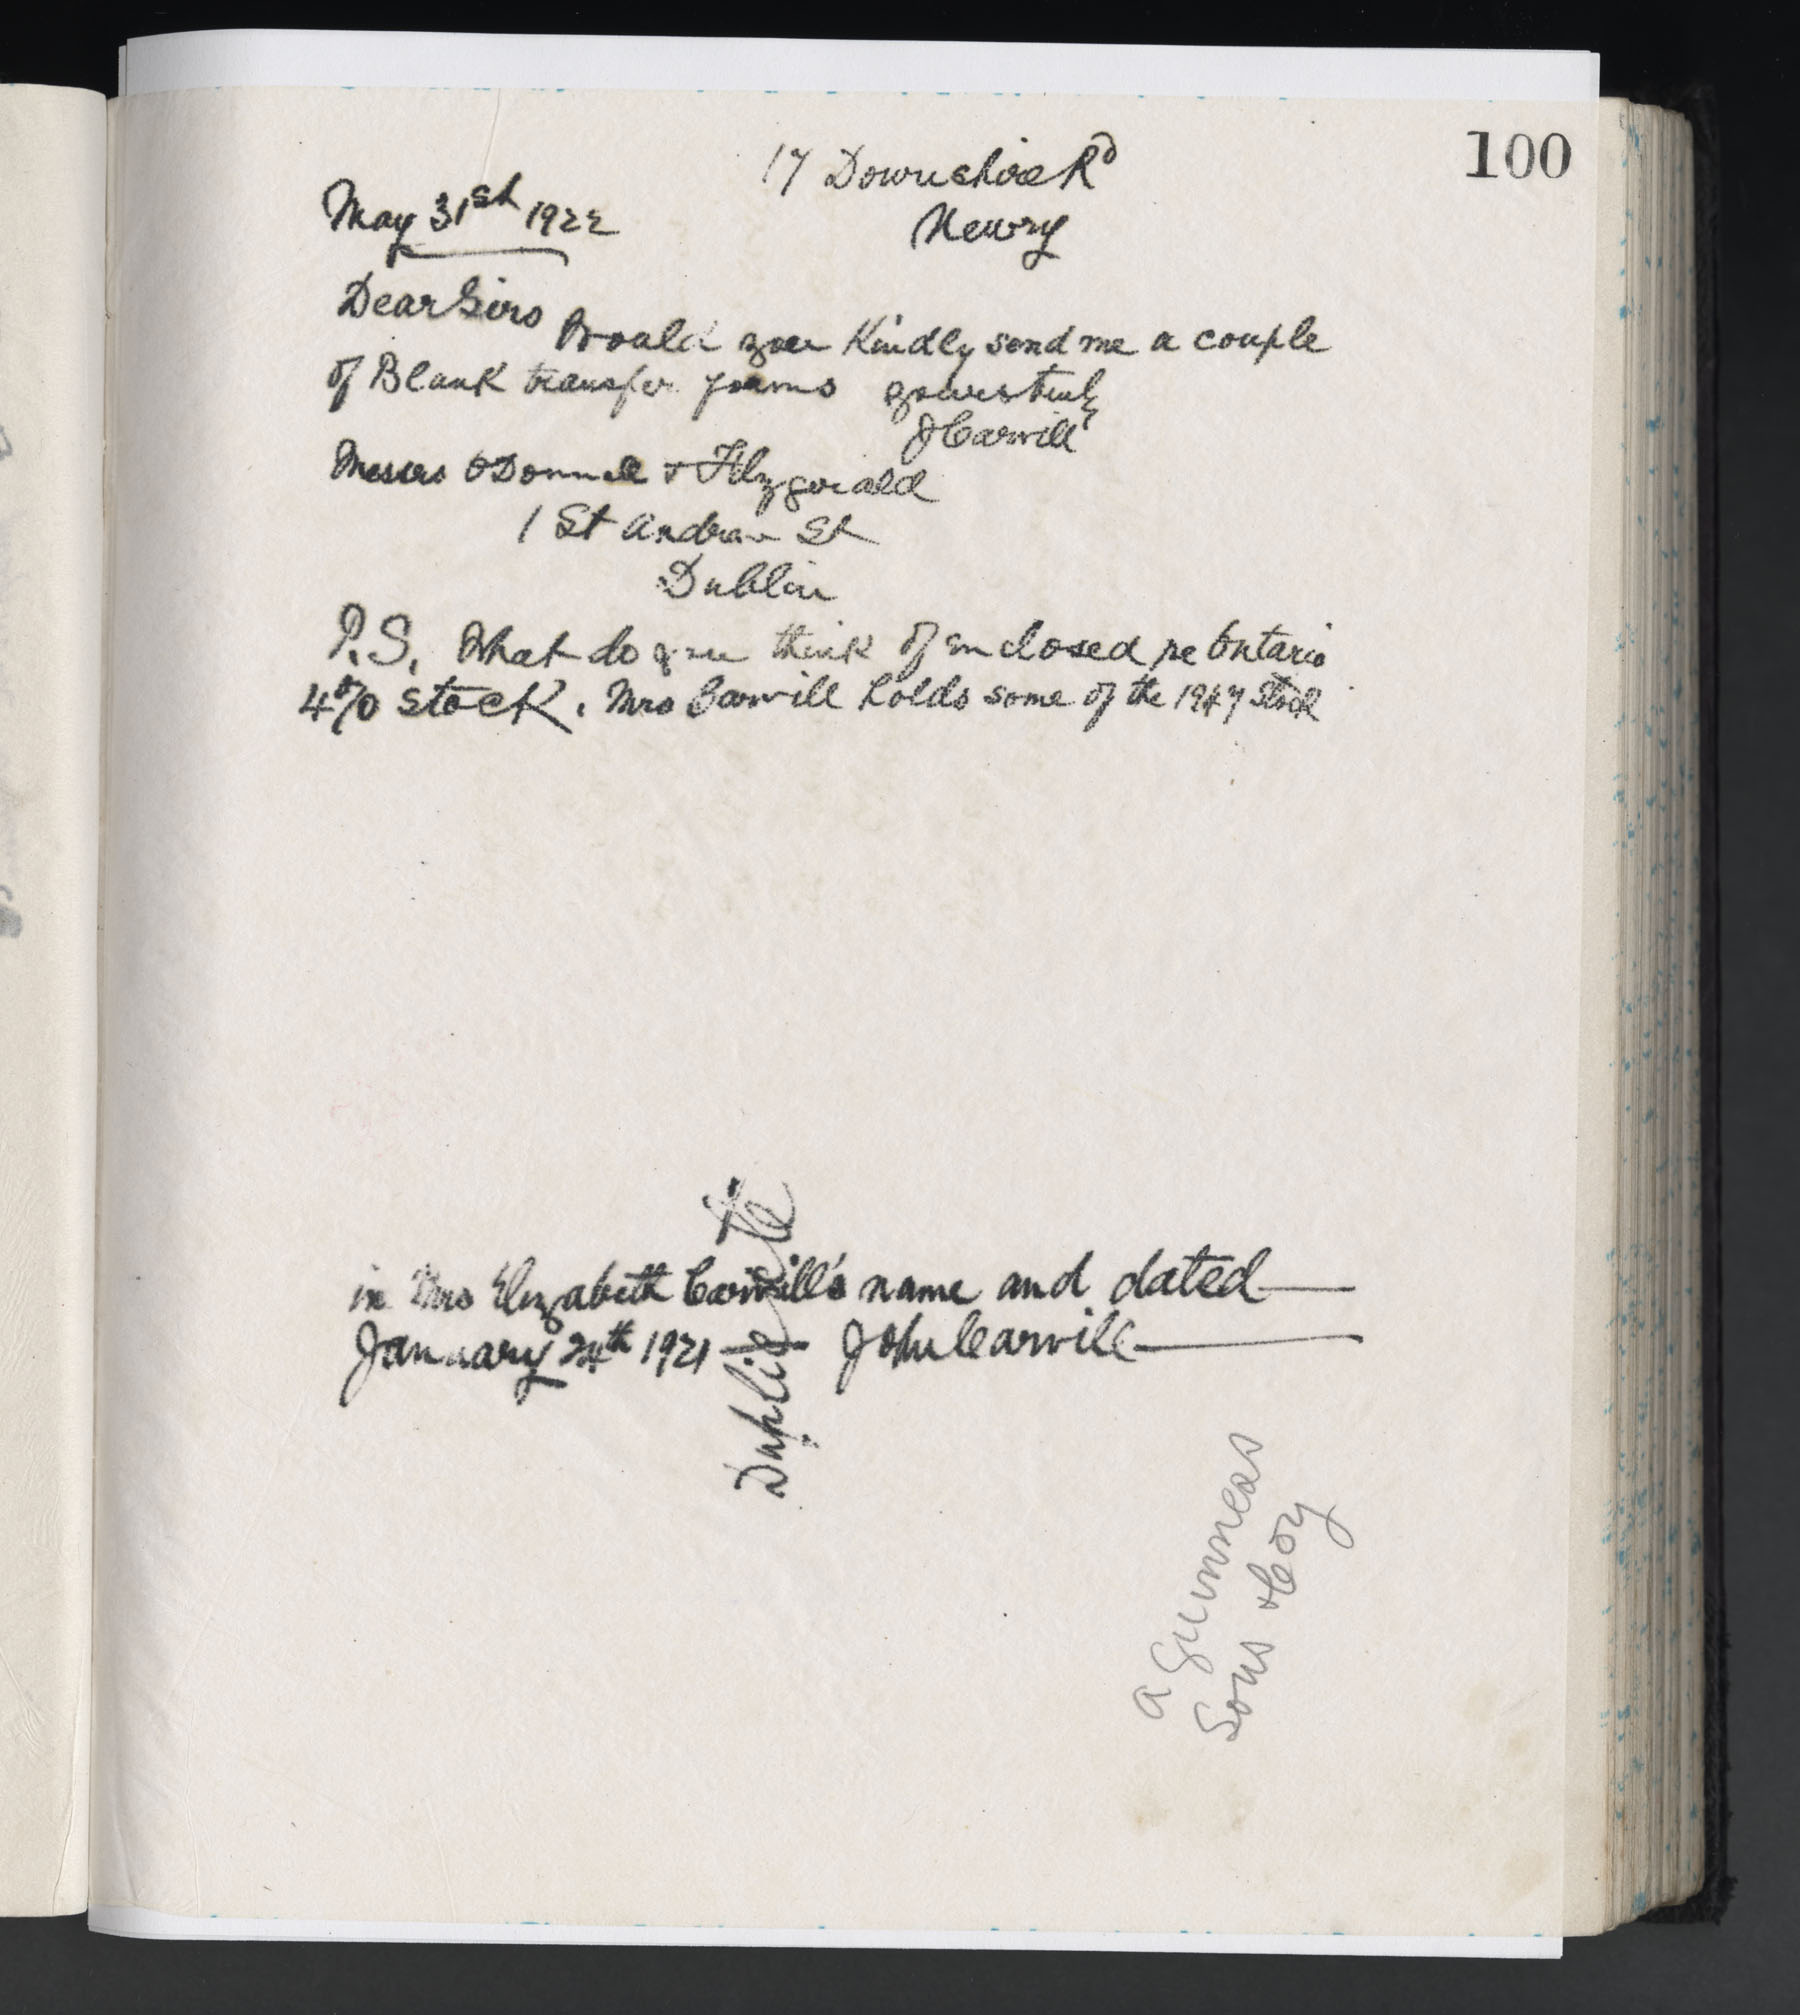 100
17 Downshire Rd
May 31st 1922
Newry
Dear Sirs
Would you Kindly send me a couple
of Blank transfer forms yours truly
J Carvill
Messrs O'Donnell & Fitzgerald
1 St Andrew St
Dublin
P.S. What do you think of enclosed re Ontario
4% Stock. Mrs Carvill holds some of the 1947 Stock
in Mrs Elizabeth Carvill's name and dated
January 24th 1921 John Carvill
Duplicate
A Guinness
Sons & Coy